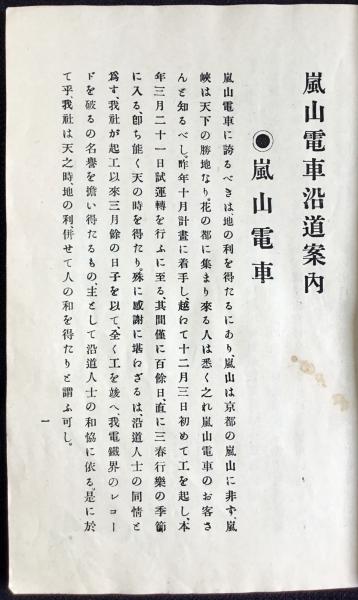 嵐山電車沿道案內
◉嵐山電車
嵐山電車に誇るべきは地の利を得たるにあり、嵐山は京都の嵐山に非ず、嵐
峽は天下の勝地なり。花の都に集まり來る人は悉く之れ嵐山電車のお客さ
んと知るべし。昨年十月計畫に着手し、越わて十二月三日初めて工を起し、本
年三月二十一日試運轉を行ふに至る、其間僅に百餘日、直に三春行樂の季節
に入る、卽ち能く天の時を得たり。殊に感謝に堪わざるは、沿道人士の同情と
爲す、我社が起工以來三月餘の日子を以て、全く工を竣へ、我電鐵界のレコー
ドを破るの名譽を擔い得たるもの、主として沿道人士の和協に依る。是に於
て乎、我社は天之時、地の利、併せて人の和を得たりと謂ふ可し。
一